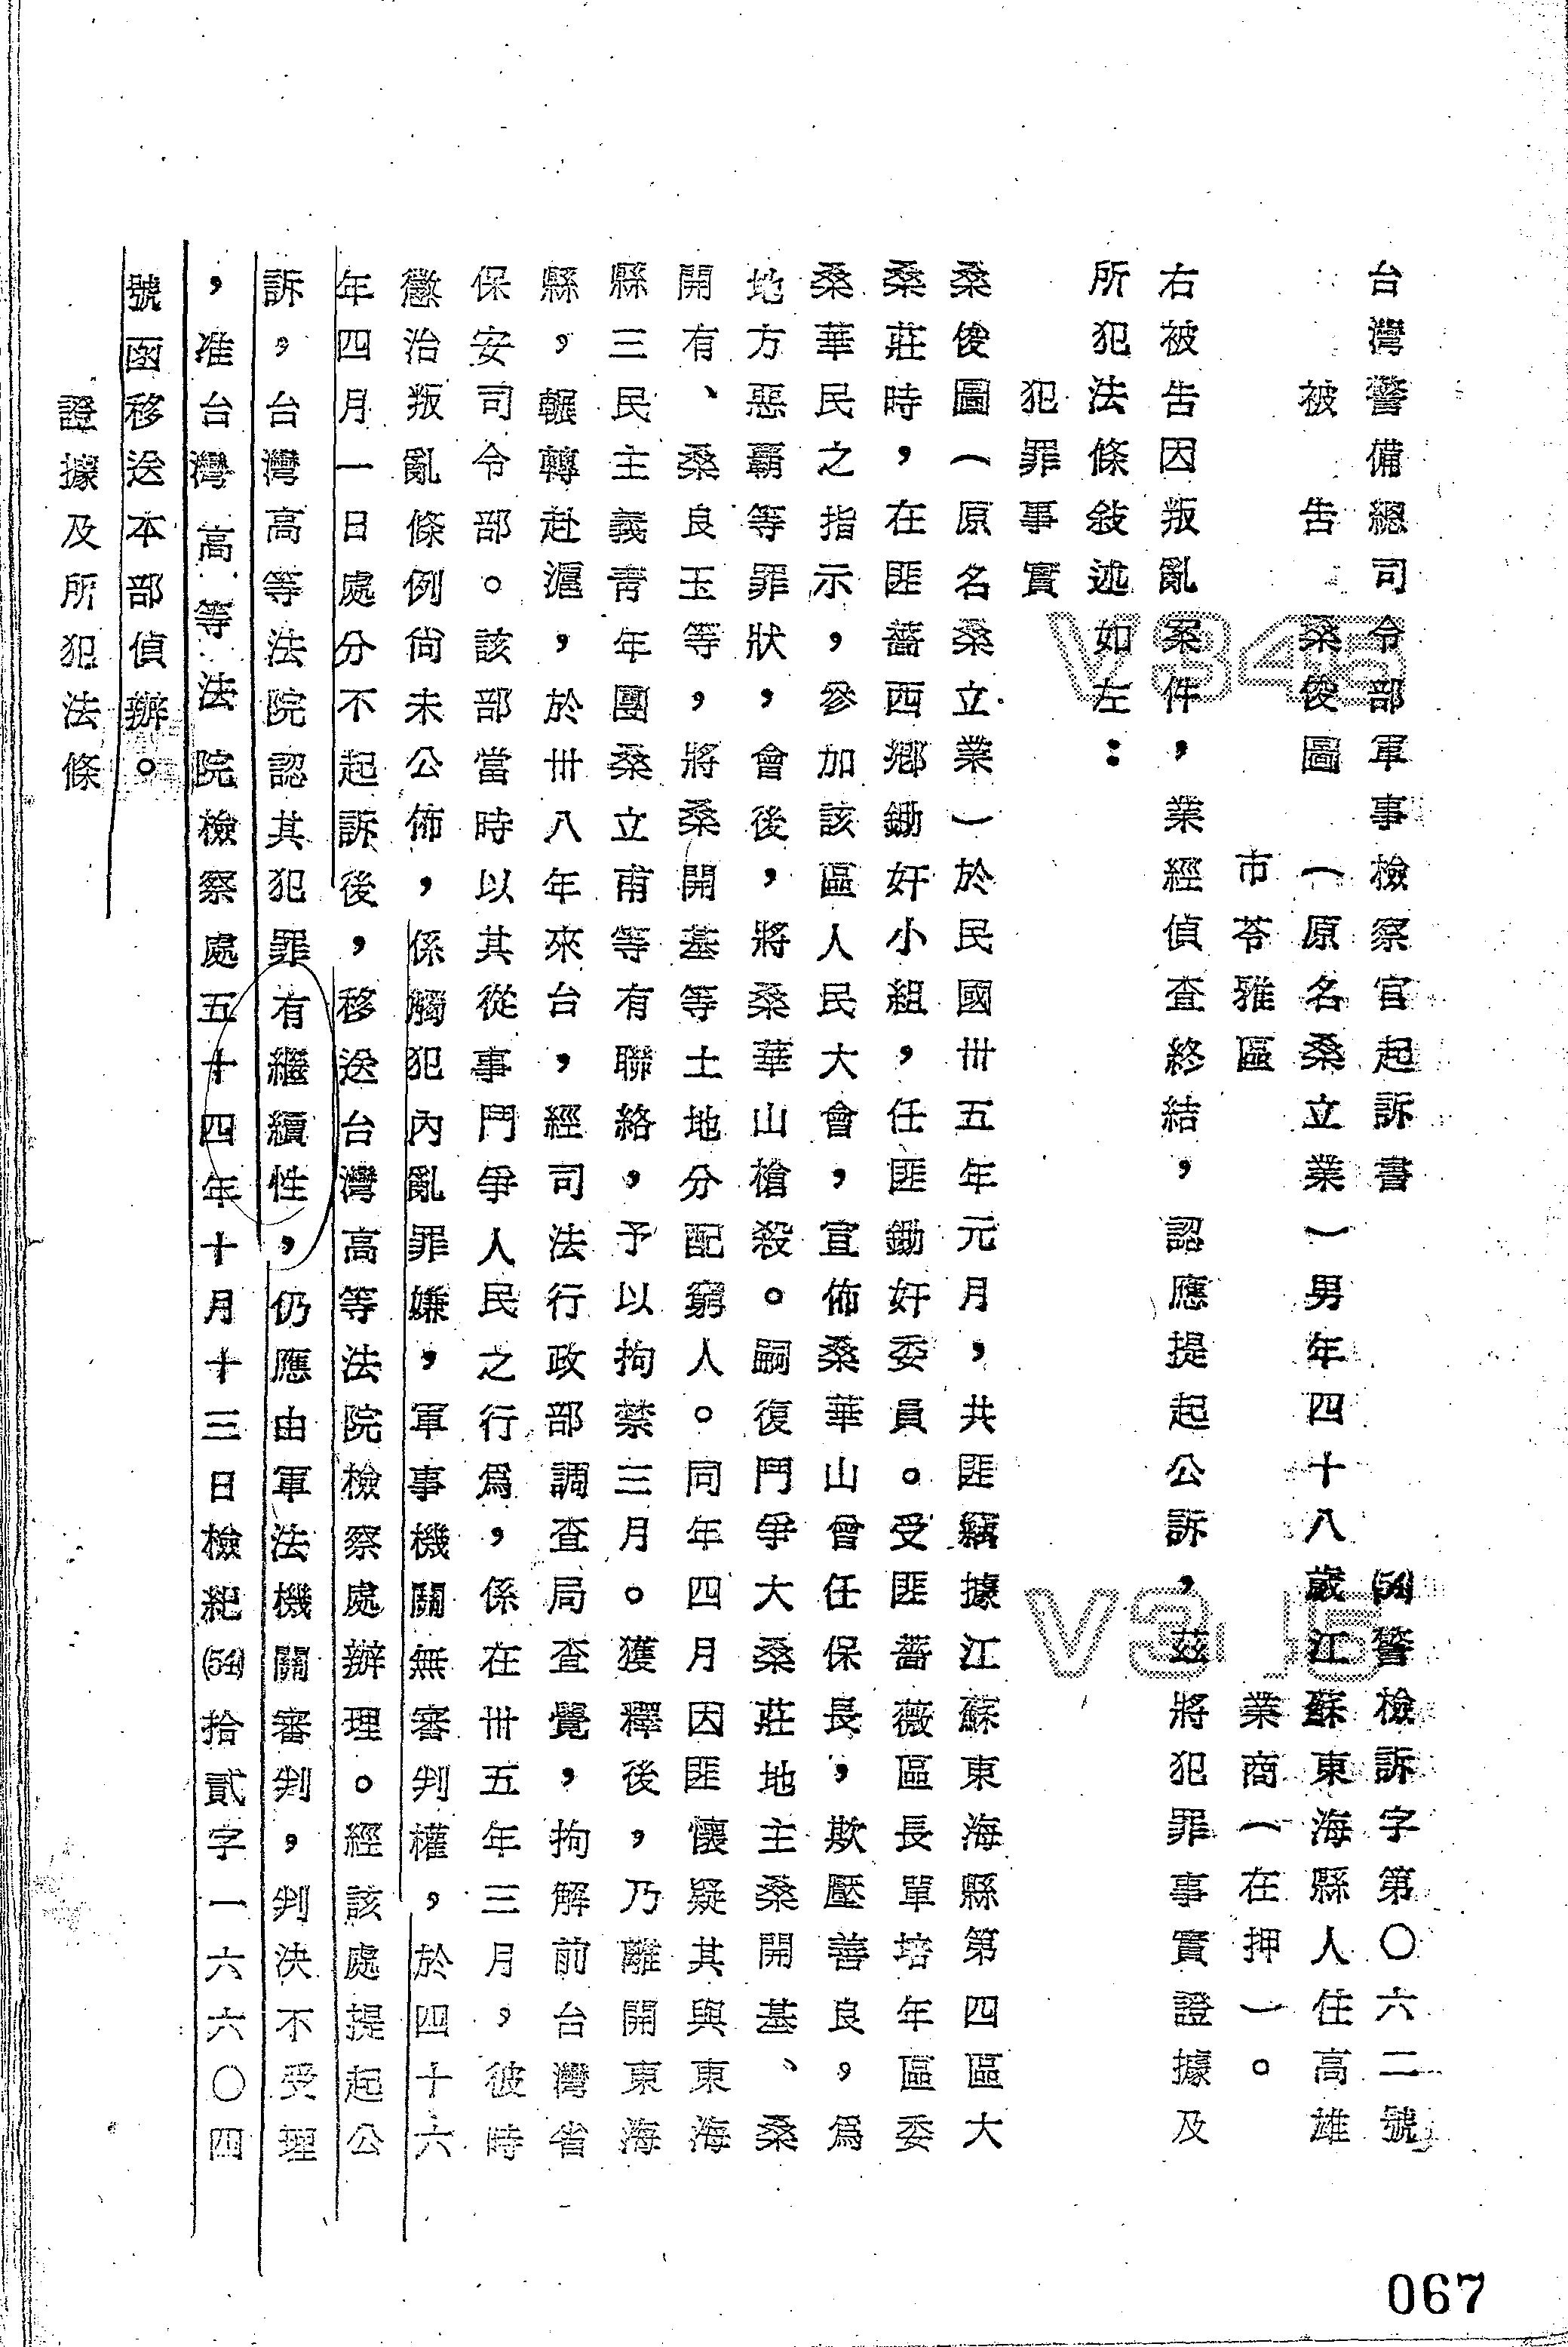 台灣警備總司令部軍事檢察官起訴書 (54)警檢訴字第〇六二號
被告 桑俊圖（原名桑立業）男年四十八歲江蘇東海縣人住高雄
市苓雅區 業商（在押）。
右被告因叛亂案件，業經偵查終結，認應提起公訴，茲將犯罪事實證據及
所犯法條敍述如左：
犯罪事實
桑俊圖（原名桑立業）於民國卅五年元月，共匪竊據江蘇東海縣第四區大
桑莊時，在匪薔西鄉鋤奸小組，任匪鋤奸委員。受匪薔薇區長單培年區委
桑華民之指示，參加該區人民大會，宣佈桑華山曾任保長，欺壓善良，爲
地方惡霸等罪狀，會後，將桑華山槍殺。嗣復鬥爭大桑莊地主桑開基、桑
開有、桑良玉等，將桑開基等土地分配窮人。同年四月因匪懷疑其與東海
縣三民主義青年團桑立甫等有聯絡，予以拘禁三月。獲釋後，乃離開東海
縣，輾轉赴滬，於卅八年來台，經司法行政部調查局查覺，拘解前台灣省
保安司令部。該部當時以其從事鬥爭人民之行爲，係在卅五年三月，彼時
懲治叛亂條例尙未公佈，係觸犯內亂罪嫌，軍事機關無審判權，於四十六
年四月一日處分不起訴後，移送台灣高等法院檢察處辦理。經該處提起公
訴，台灣高等法院認其犯罪有繼續性，仍應由軍法機關審判，判決不受理
，准台灣高等法院檢察處五十四年十月十三日檢紀(54)拾貳字一六六〇四
號函移送本部偵辦。
證據及所犯法條
V345
V3 5
067